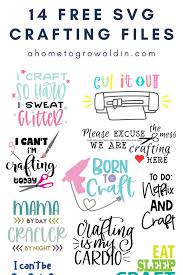 14 FREE SVG
CRAFTING FILES
ahometogrowoldin.com
CRAFT
SO HARD
I SWEAT
GLITTER
CUT IT OUT
I CAN'T
I'M
crafting
today
Please EXCUSE
the mess
WE ARE
crafting
HERE
BORN
TO
Craft
TO DO:
Netflix
AND
Craft
MAMA
BY DAY
CRAFTER
BY NIGHT
Crafting
is my
CARDIO
EAT
SLEEP
CRAFT
I can't be